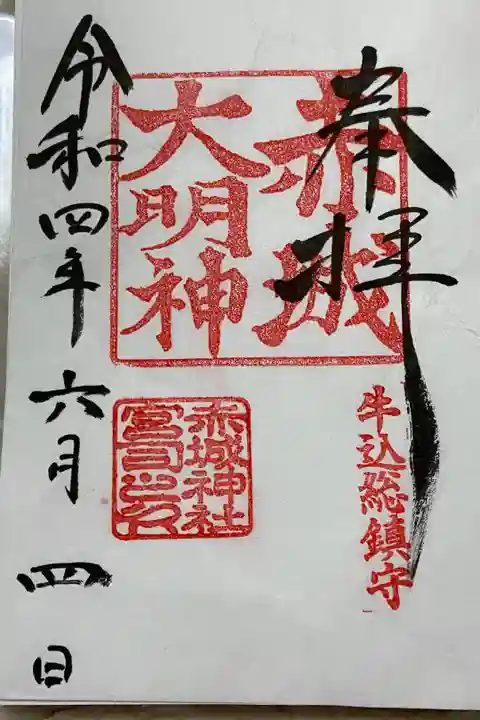 奉拝
牛込総鎮守
赤城
大明神
赤城神社
宮司之印
令和四年六月四日